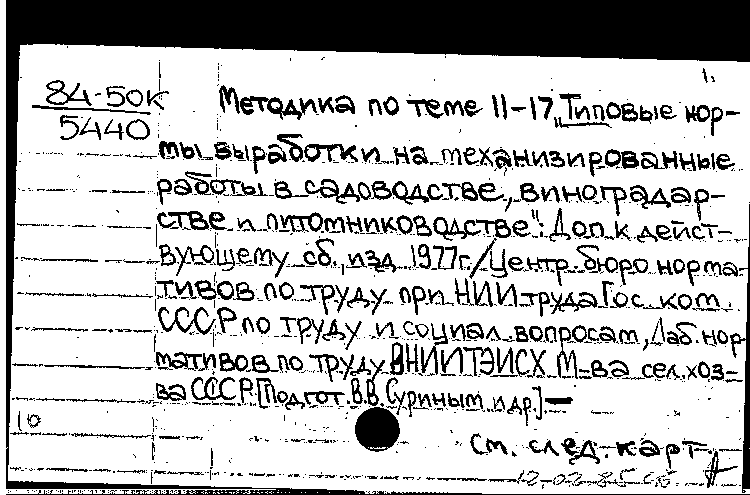 1.
84-50к
5440
Методика по теме 11-17 „Типовые нор-
мы выработки на механизированные
работы в садоводстве, виноградар-
стве и питомниководстве": Доп. к дейст-
вующему сб., изд. 1977г. / Центр. бюро норма-
тивов по труду при НИИ труда Гос. ком.
СССР по труду и социал. вопросам, Лаб. нор-
мативов по труду ВНИИТЭИСХ М-ва сел. хоз-
ва СССР. [Подгот. В.В. Суриным и др.]. —
10
См. след. карт.
12.02.85 сб